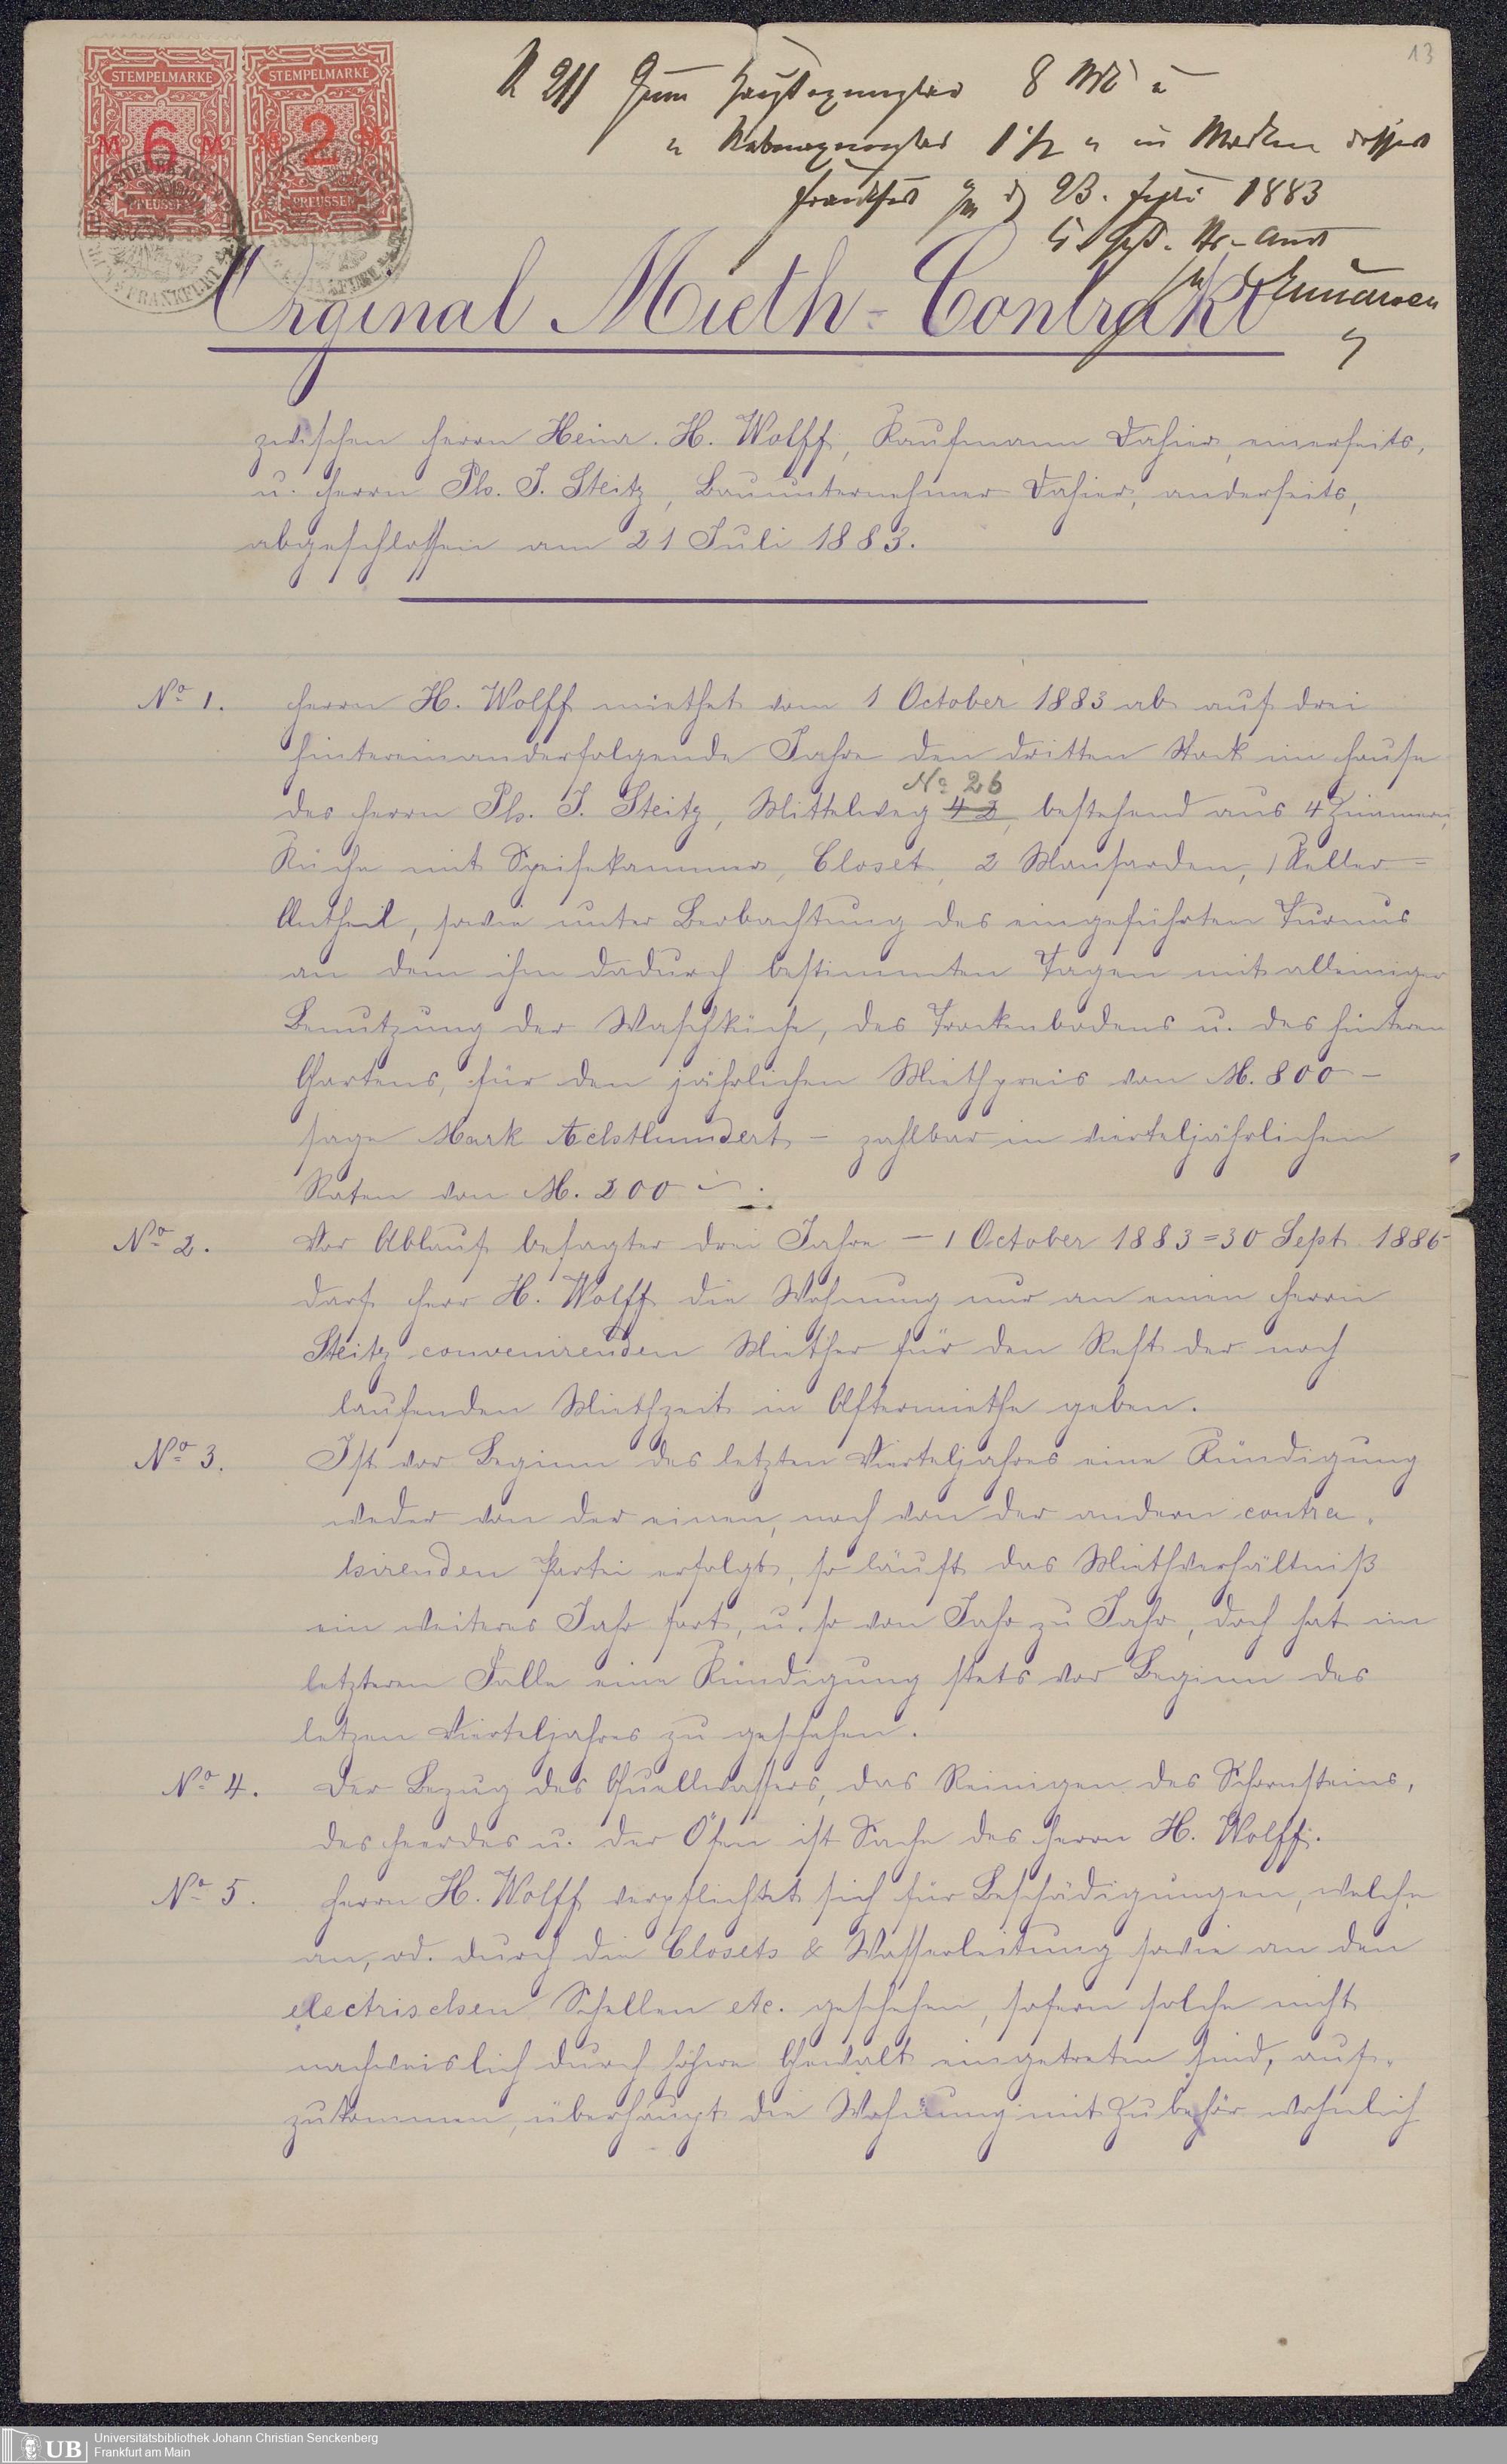 13
STEMPELMARKE
STEMPELMARKE
M 6 M
M 2 M
PREUSSEN
PREUSSEN
FRANKFURT
Zum Hauptexemplar 8 Mk u
" Nebenexemplar 1 1/2 " in Marken
Frankfurt 23. Juli 1883
Orginal Mieth-Contrakt
zwischen Herrn Heinr. H. Wolff, Kaufmann dahier, einerseits,
u. Herrn Ph. J. Steitz, Bauunternehmer dahier, anderseits,
abgeschlossen am 21 Juli 1883.
No 1. Herrn H. Wolff miethet vom 1 October 1883 ab auf drei
hintereinanderfolgende Jahre den dritten Stock im Hause
No 26
des Herrn Ph. J. Steitz, Mittelweg 42, bestehend aus 4 Zimmern,
Küche mit Speisekammer, Closet, 2 Mansarden, 1 Keller-
Antheil, sowie unter Beobachtung des eingeführten Turnus
an dem ihm dadurch bestimmten Tagen mit alleiniger
Benutzung der Waschküche, des Trockenbodens u. des hinteren
Gartens, für den jährlichen Miethpreis von M. 800 –
sage Mark Achthundert – zahlbar in vierteljährlichen
Raten von M. 200 –.
No 2. Vor Ablauf besagter drei Jahre – 1 October 1883 = 30 Sept. 1886 –
darf Herr H. Wolff die Wohnung nur an einen Herrn
Steitz convenirenden Miether für den Rest der noch
laufenden Miethzeit in Aftermiethe geben.
No 3. Ist vor Beginn des letzten Vierteljahres eine Kündigung
weder von der einen, noch von der andern contra-
hirenden Partei erfolgt, so läuft das Miethverhältniß
ein weiteres Jahr fort, u. so von Jahr zu Jahr, doch hat im
letzteren Falle eine Kündigung stets vor Beginn des
letzen Vierteljahres zu geschehen.
No 4. Der Bezug des Quellwassers, das Reinigen des Schornsteins,
des Heerdes u. der Öfen ist Sache des Herrn H. Wolff.
No 5. Herrn H. Wolff verpflichtet sich für Beschädigungen, welche
an, od. durch die Closets & Wasserleitung sowie an den
electrischen Schellen etc. geschehen, sofern solche nicht
nachweislich durch höhere Gewalt eingetreten sind, auf-
zukommen, überhaupt die Wohnung mit Zubehör wohnlich
UB
Universitätsbibliothek Johann Christian Senckenberg
Frankfurt am Main